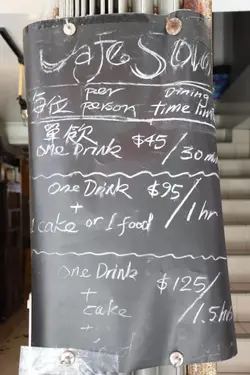 Cafe
每位 per person Dining time
單飲
one Drink $45 / 30
one Drink $95 / 1 hr
+
1 cake or 1 food
one Drink $125 / 1.5
+
cake
+